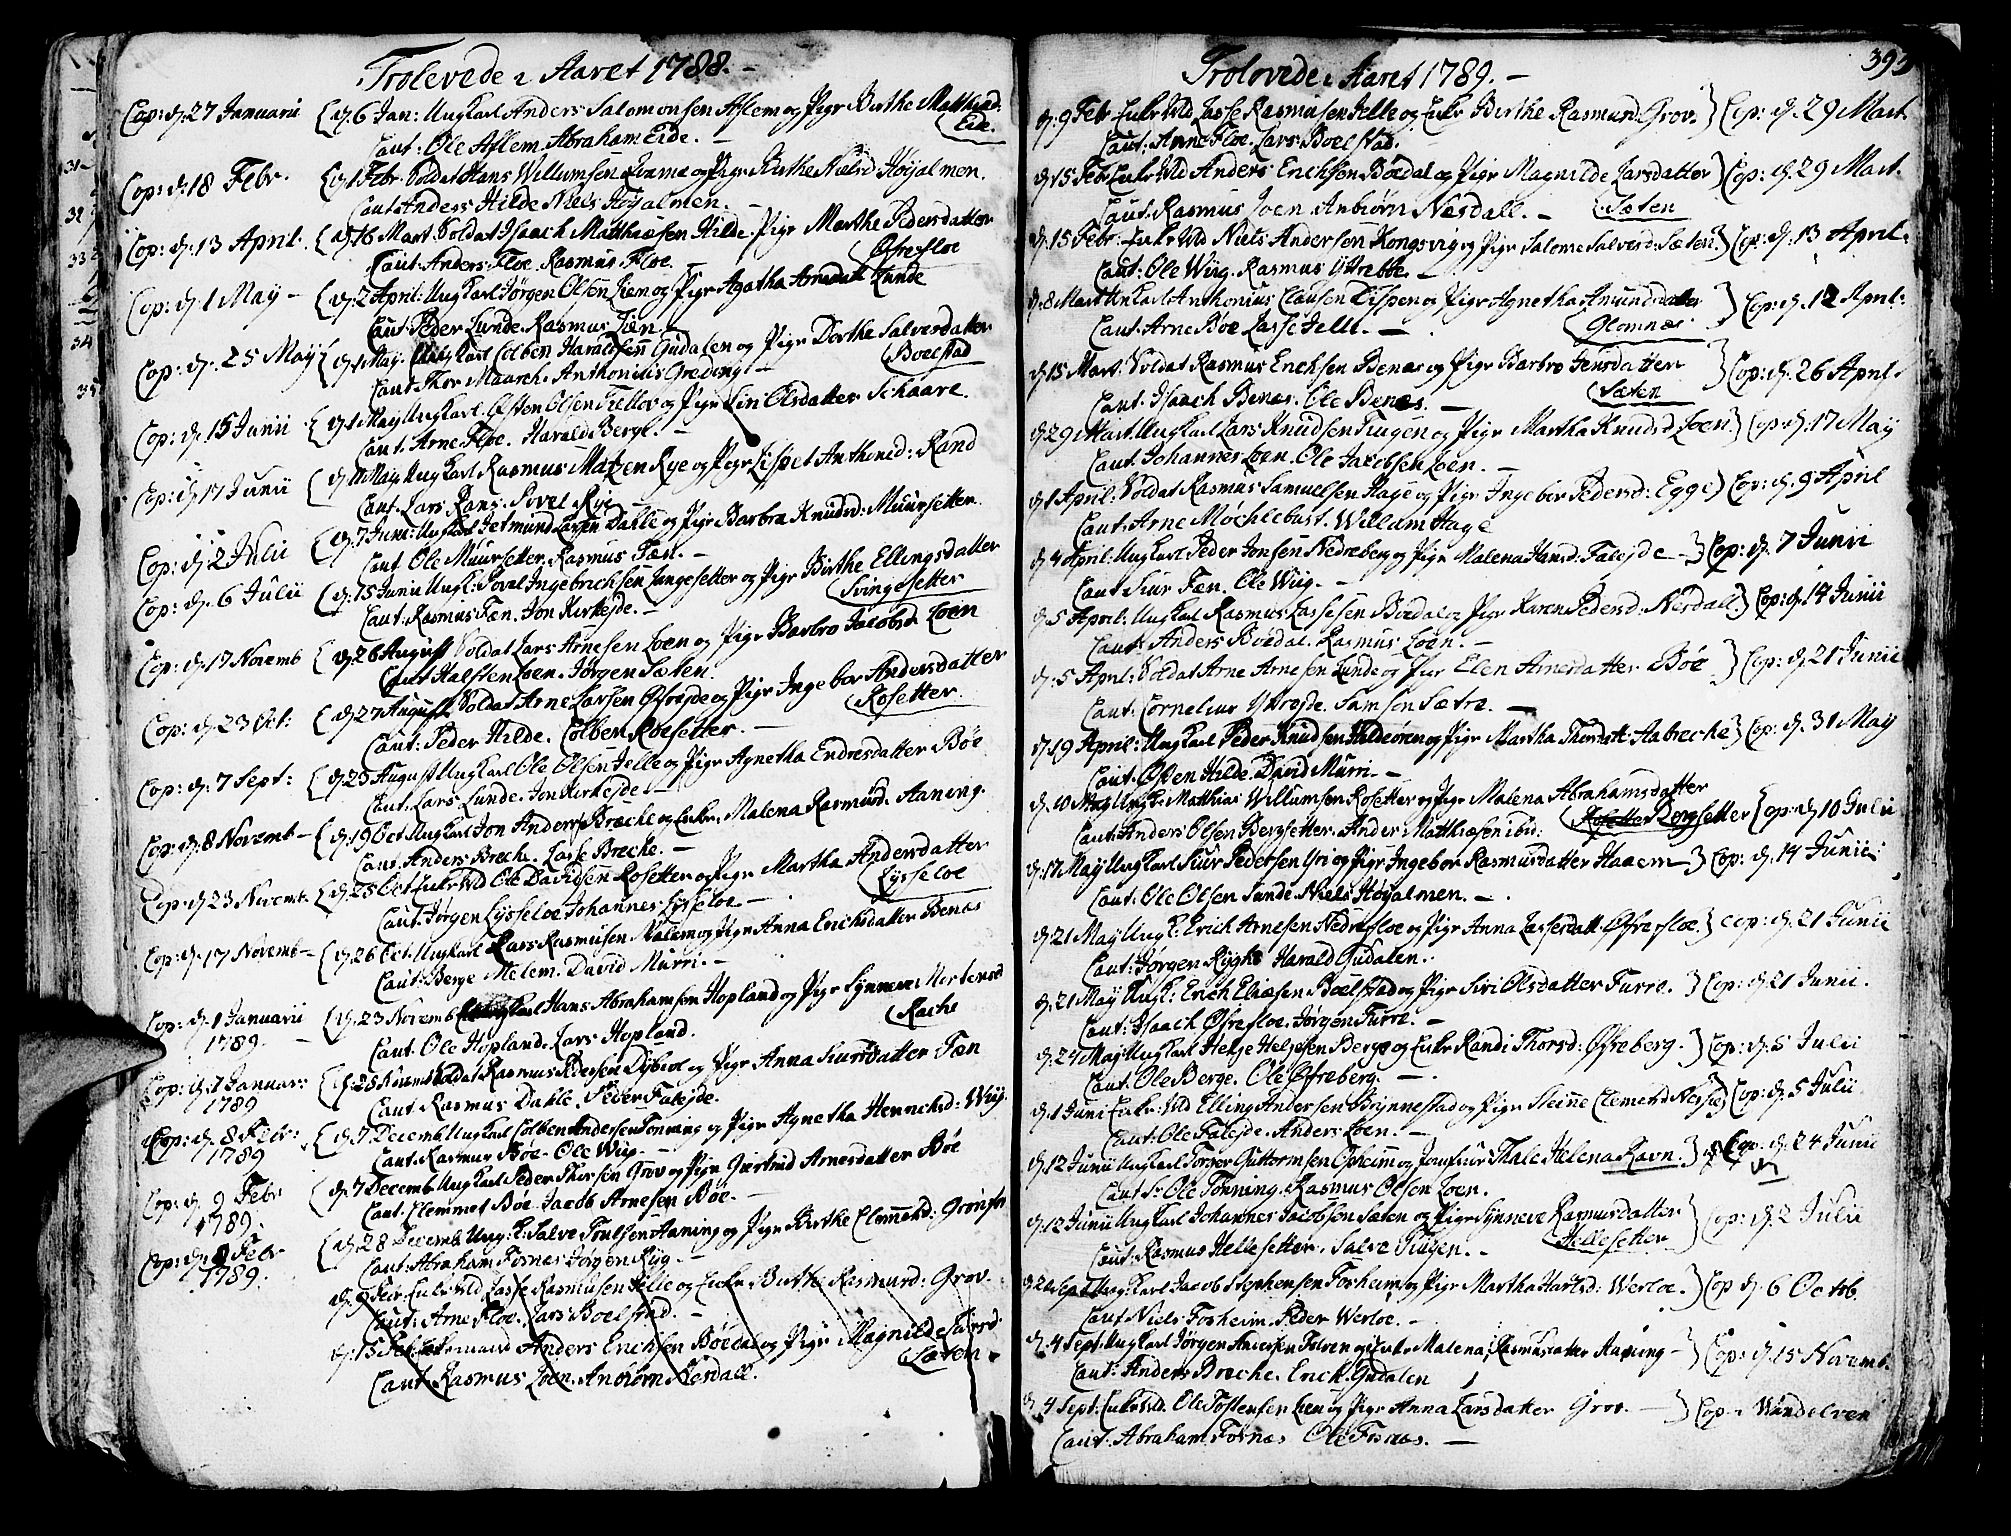 Trolovede i Aaret 1788. –
Cop: d. 27 Januarii { d. 6 Jan: Ungkarl Anders Salomonsen Aflem og Pige Birthe Matthiasd.
Eide.
Caut: Ole Aflem. Abraham Eide. –
Cop: d. 18 Febr. { d. 1 Febr. Soldat Hans Willumsen og Pige Birthe Nielsd Höyalmen.
Caut Anders Hilde Niels Höyalmen. –
Cop: d. 13 April. { d. 16 Mart. Soldat Isaach Matthiasen Hilde. Pige Marthe Pedersdatter
Öfrefloe
Caut: Anders Floe. Rasmus Floe. –
Cop: d. 1 May – { d. 2 April: Ungkarl Jörgen Olsen Lien og Pige Agatha Arnedatt Lunde
Caut: Peder Lunde. Rasmus Lien. –
Cop: d. 25 May { d. 1 May. Ungkarl Colben Haraldsen Gudalen og Pige Dorthe Salvesdatter
Boelstad
Caut: Thor Maarch. Anthonius Greding. –
Cop: d. 15 Junii { d. 1 May Ungkarl Olsen og Pige Siri Olsdatter Schaare.
Caut: Arne Floe. Harald Berge. –
Cop: d. 17 Junii { d. 11 May Ungkarl Rasmus Matzen Rye og Pige Lispet Anthonid: Rand
Caut: Lars Rand. Povel Rye
Cop: d. 2 Julii { d. 7 Junii Ungkarl Jetmund Larsen Dahle og Pige Barbra Knudsd: Muursetter.
Caut Ole Muursetter. Rasmus Tæn. –
Cop: d. 6 Julii { d. 15 Junii Ungk: Povel Ingebrichsen Langesetter og Pige Birthe Ellingsdatter
Svingesetter
Caut: Rasmus Tæn. Jon Kirkejde. –
Cop: d. 17 Novemb { d. 26 August Soldat Lars Arnesen Loen og Pige Barbro Jacobsd Loen
Caut Halsten Loen. Jörgen Sæten.
Cop: d. 23 Oct: { d. 27 August Soldat Arne Larsen og Pige Ingebor Andersdatter
Rosetter.
Caut: Peder Hilde. Colben Roesetter. –
Cop: d. 7 Sept: { d. 29 August Ungkarl Ole Olsen Jelle og Pige Agnetha Endresdatter Böe
Caut: Lars Lunde. Jon Kirkejde. –
Cop: d. 8 Novemb – { d. 19 Oct Ungkarl Jon Anders: Breche og Enke Malena Rasmusd. Aaning.
Caut: Anders Breche. Lasse Breche. –
Cop: d 23 Novemb. { d. 25 Oct Enkemd Ole Davidsen Rosetter og Pige Martha Andersdatter
Lysseloe
Caut: Jörgen Lysseloe Johannes Lysseloe –
Cop: d. 17 Novemb – { d. 26 Oct. Ungkarl Lars Rasmusen Melem og Pige Anna Erichsdatter Benæs
Caut: Berge Melem. David Murri. –
Cop: d. 1 Januarii { d. 23 Novemb Ungkarl Hans Abrahamsen Hopland og Pige Synneve Mortensd
1789. – Rache
Caut. Ole Hopland. Lars Hopland.
Cop: d. 7 Januar: { d. 28 Novemb Soldat Rasmus Pedersen og Pige Anna Siursdatter Tæn
1789
Caut. Rasmus Dahle. Peder Falejde.
Cop: d. 8 Febr: { d. 7 Decemb Ungkarl Colben Andersen Tonning og Pige Agnetha Henrichsd: Wiig.
1789
Caut. Rasmus Böe. Ole Wiig. –
Cop: d. 9 Febr { d. 7 Decemb Ungkarl Peder Thorsen Grov og Pige Giertrud Arnesdatter Böe
1789.
Caut. Clemmet Böe. Jacob Arnesen Böe. –
Cop: d. 8 Febr { d. 28 Decemb. Ungk: Salve Poulsen Aaning og Pige Birthe Clemmetsd:
1789.
Caut: Abraham Fornæs Jörgen Ryg. –
d. 9 Febr. Enkemd Lasse Rasmusen Jelle og Enke Birthe Rasmusd: Grov.
Caut: Arne Floe. Lars Boelstad. –
d. 15 Febr: Enkemand Anders Erichsen Böedal og Pige Magnilde Larsd:
Sæten –
Caut: Rasmus Loen. Anbiörn Nesdall.
31
32
33
34
35
393
Trolovede i Aaret 1789. –
d. 9 Febr Enkemd Lasse Rasmusen Jelle og Enke Birthe Rasmusd: Grov. } Cop: d. 29 Mart.
Caut: Arne Floe. Lars Boelstad.
d. 15 Febr. Enkemd Anders Erichsen Böedal og Pige Magnilde Larsdatter } Cop: d. 29 Mart.
Caut. Rasmus Loen Anbiörn Nesdall. – Sæten
d. 15 Febr: Enkemd Niels Andersen Kongsvig og Pige Salome Salvesd: Sæten. } Cop: d. 13 April.
Caut: Ole Wiig. Rasmus Yttrebbe. –
d. 8 Mart Unkarl Anthonius Clausen og Pige Agnetha Amundsdatter } Cop: d. 12 April:
Caut: Arne Böe Lasse Jelle. – Glomnæs
d. 15 Mart: Soldat Rasmus Erichsen Benæs og Pige Barbro Jensdatter } Cop: d. 26 April
Caut: Isaach Benæs. Ole Benæs. – Sæten
d. 29 Mart. Ungkarl Lars Knudsen Tiugen og Pige Martha Knudsd Loen. } Cop: d. 17 May
Caut: Johannes Loen. Ole Jacobsen Loen. –
d. 1 April: Soldat Rasmus Samuelsen Hage og Pige Ingebor Pedersd: Egge } Cop: d. 9 April
Caut: Arne Möchlebust. Willum Hage
d. 4 April. Ungkarl Peder Jonsen Nedreberg og Pige Malena Hansd: Falejde – } Cop: d. 7 Junii
Caut Siur Tæn. Ole Wiig. –
d. 5 April: Ungkarl Rasmus Lassesen Böedal og Pige Karen Pedersd: Nesdall } Cop: d. 14 Junii
Caut: Anders Böedal. Rasmus Loen. –
d. 5 April: Soldat Arne Arnesen Lunde og Pige Elen Arnesdatter Böe } Cop: d. 21 Junii
Caut: Cornelius Yttrejde. Samson Sætre. –
d. 19 April: Ungkarl Peder Knudsen Hildeören og Pige Martha Thorsdatt: Aabreche } Cop: d. 31 May
Caut: Östen Hilde. David Murri. –
d. 10 May Ungk: Matthias Willumsen Rosetter og Pige Malena Abrahamsdatter
Rosetter Bergsetter { Cop: d. 10 Julii
Caut: Anders Olsen Bergsetter. Anders Matthiasen ibid:
d. 17 May Ungkarl Siur Pedersen Yri og Pige Ingebor Rasmusdatter Haaem – } Cop: d. 14 Junii
Caut. Ole Olsen Sunde. Niels Höyalmen. –
d. 21 May Ungk: Erich Arnesen Nedrefloe og Pige Anna Lassesdatt Öfrefloe. } Cop: d. 21 Junii
Caut: Jörgen Rygh. Harald Gudalen.
d. 21 May Ungk: Erich Eliæsen Boelstad og Pige Siri Olsdatter Furre. } Cop: d. 21 Junii.
Caut: Isaach Öfrefloe. Jörgen Furre. –
d. 24 May Ungkarl Helge Helgesen Berge og Enke Randi Thorsd: Öfreberg. } Cop: d. 5 Julii
Caut: Ole Berge. Ole Öfreberg. –
d. 1 Junii Enke: Md Elling Andersen Brynnestad og Pige Steine Clemetsd } Cop: d. 5 Julii
Caut: Ole Falejde. Anders Loen. –
d. 12 Junii Ungkarl Torger Guttormsen Opheim og Jomfrue Thale Helena Ravn. } Cop: d. 24 Junii
Caut: Sr Ole Tonning. Rasmus Olsen Loen.
d. 12 Junii Ungkarl Johannes Jacobsen Sæten og Pige Synneve Rasmusdatter } Cop: d. 2 Julii
Caut: Rasmus Hellesetter. Salve Tiugen. – Hellesetter
Sept Ungkarl Jacob Stephensen Forheim og Pige Martha Haralsd: Werloe. } Cop d. 6 Octob.
Caut Niels Forheim. Peder Werloe. –
d. 4 Sept: Ungkarl Jörgen Andersen og Enke Malena Rasmusdatter Aaning – } Cop: d. 15 Novemb.
Caut: Anders Breche. Erich Gudalen
d. 4 Sept: Enkemd. Ole Tostensen og Pige Anna Larsdatter Grov. – } Cop i Windelven
Caut: Abraham Fornæs Ole Fornæs. –